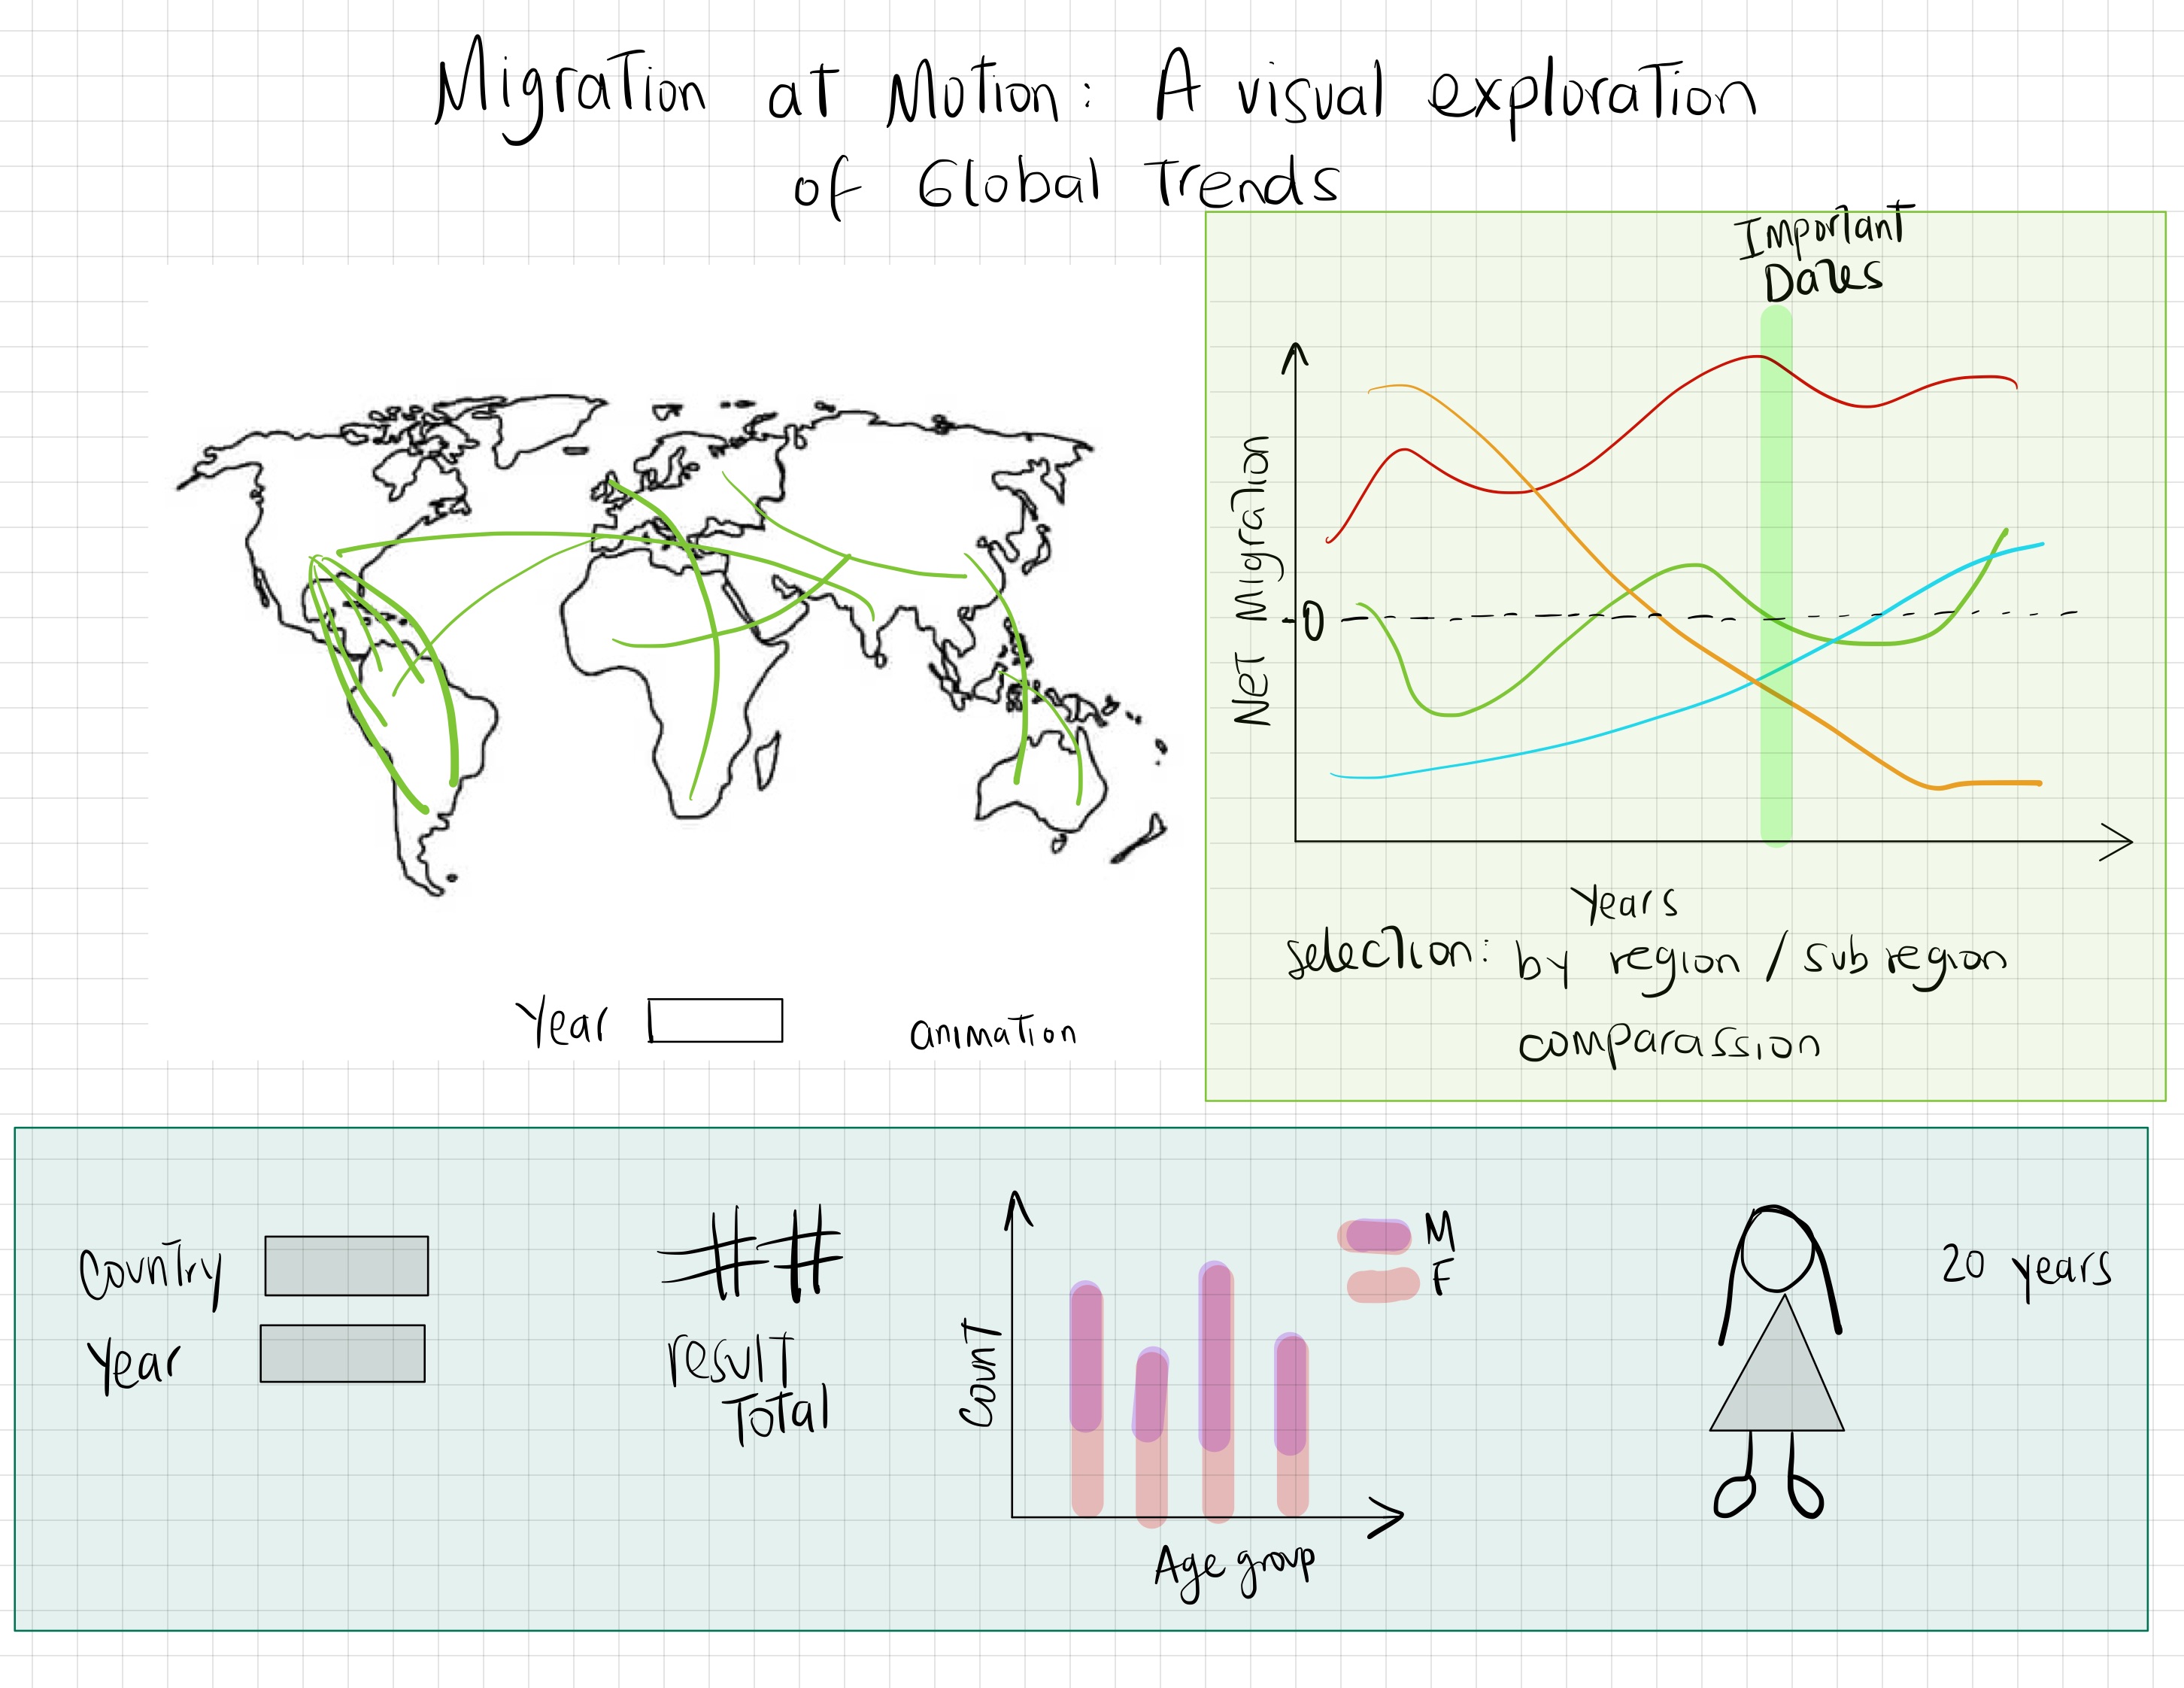 Migration at Motion: A visual exploration
of Global Trends
Important
Dates
Net Migration
0
Years
selection: by region / sub region
comparassion
Year
animation
Country
Year
##
result
Total
Count
Age group
M
F
20 years